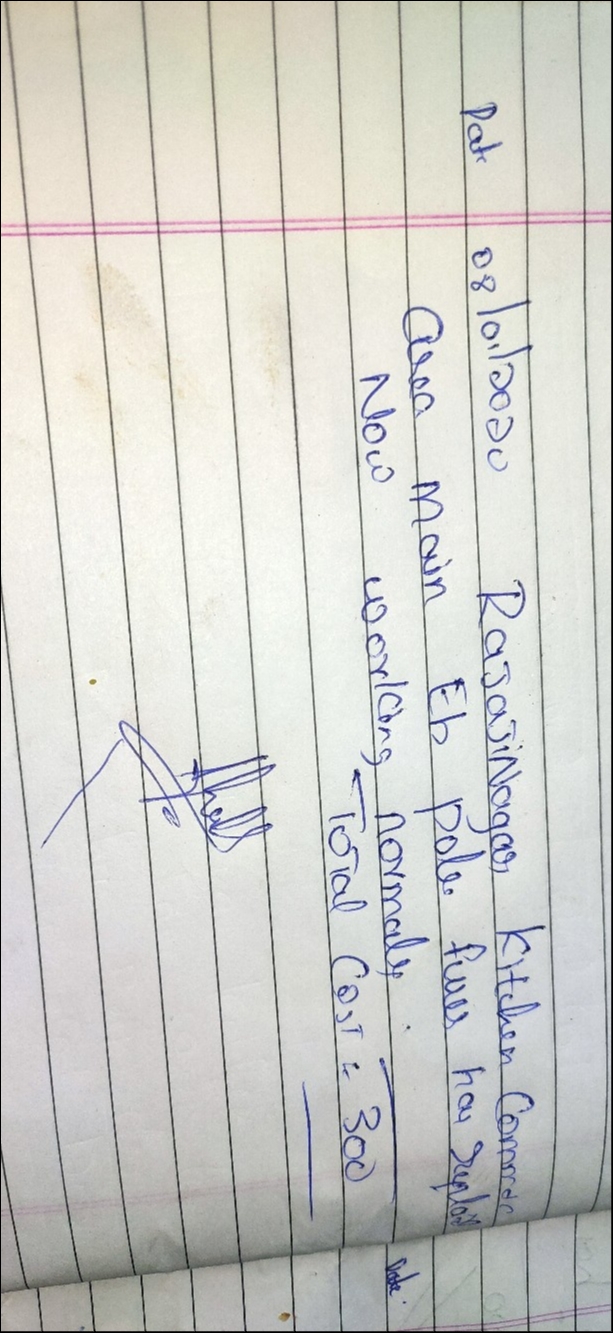 Date 08/01/2020 RajajiNagar Kitchen Common
Area Main Eb pole fuse has
Now working normaly.
Total Cost = 300
Date.